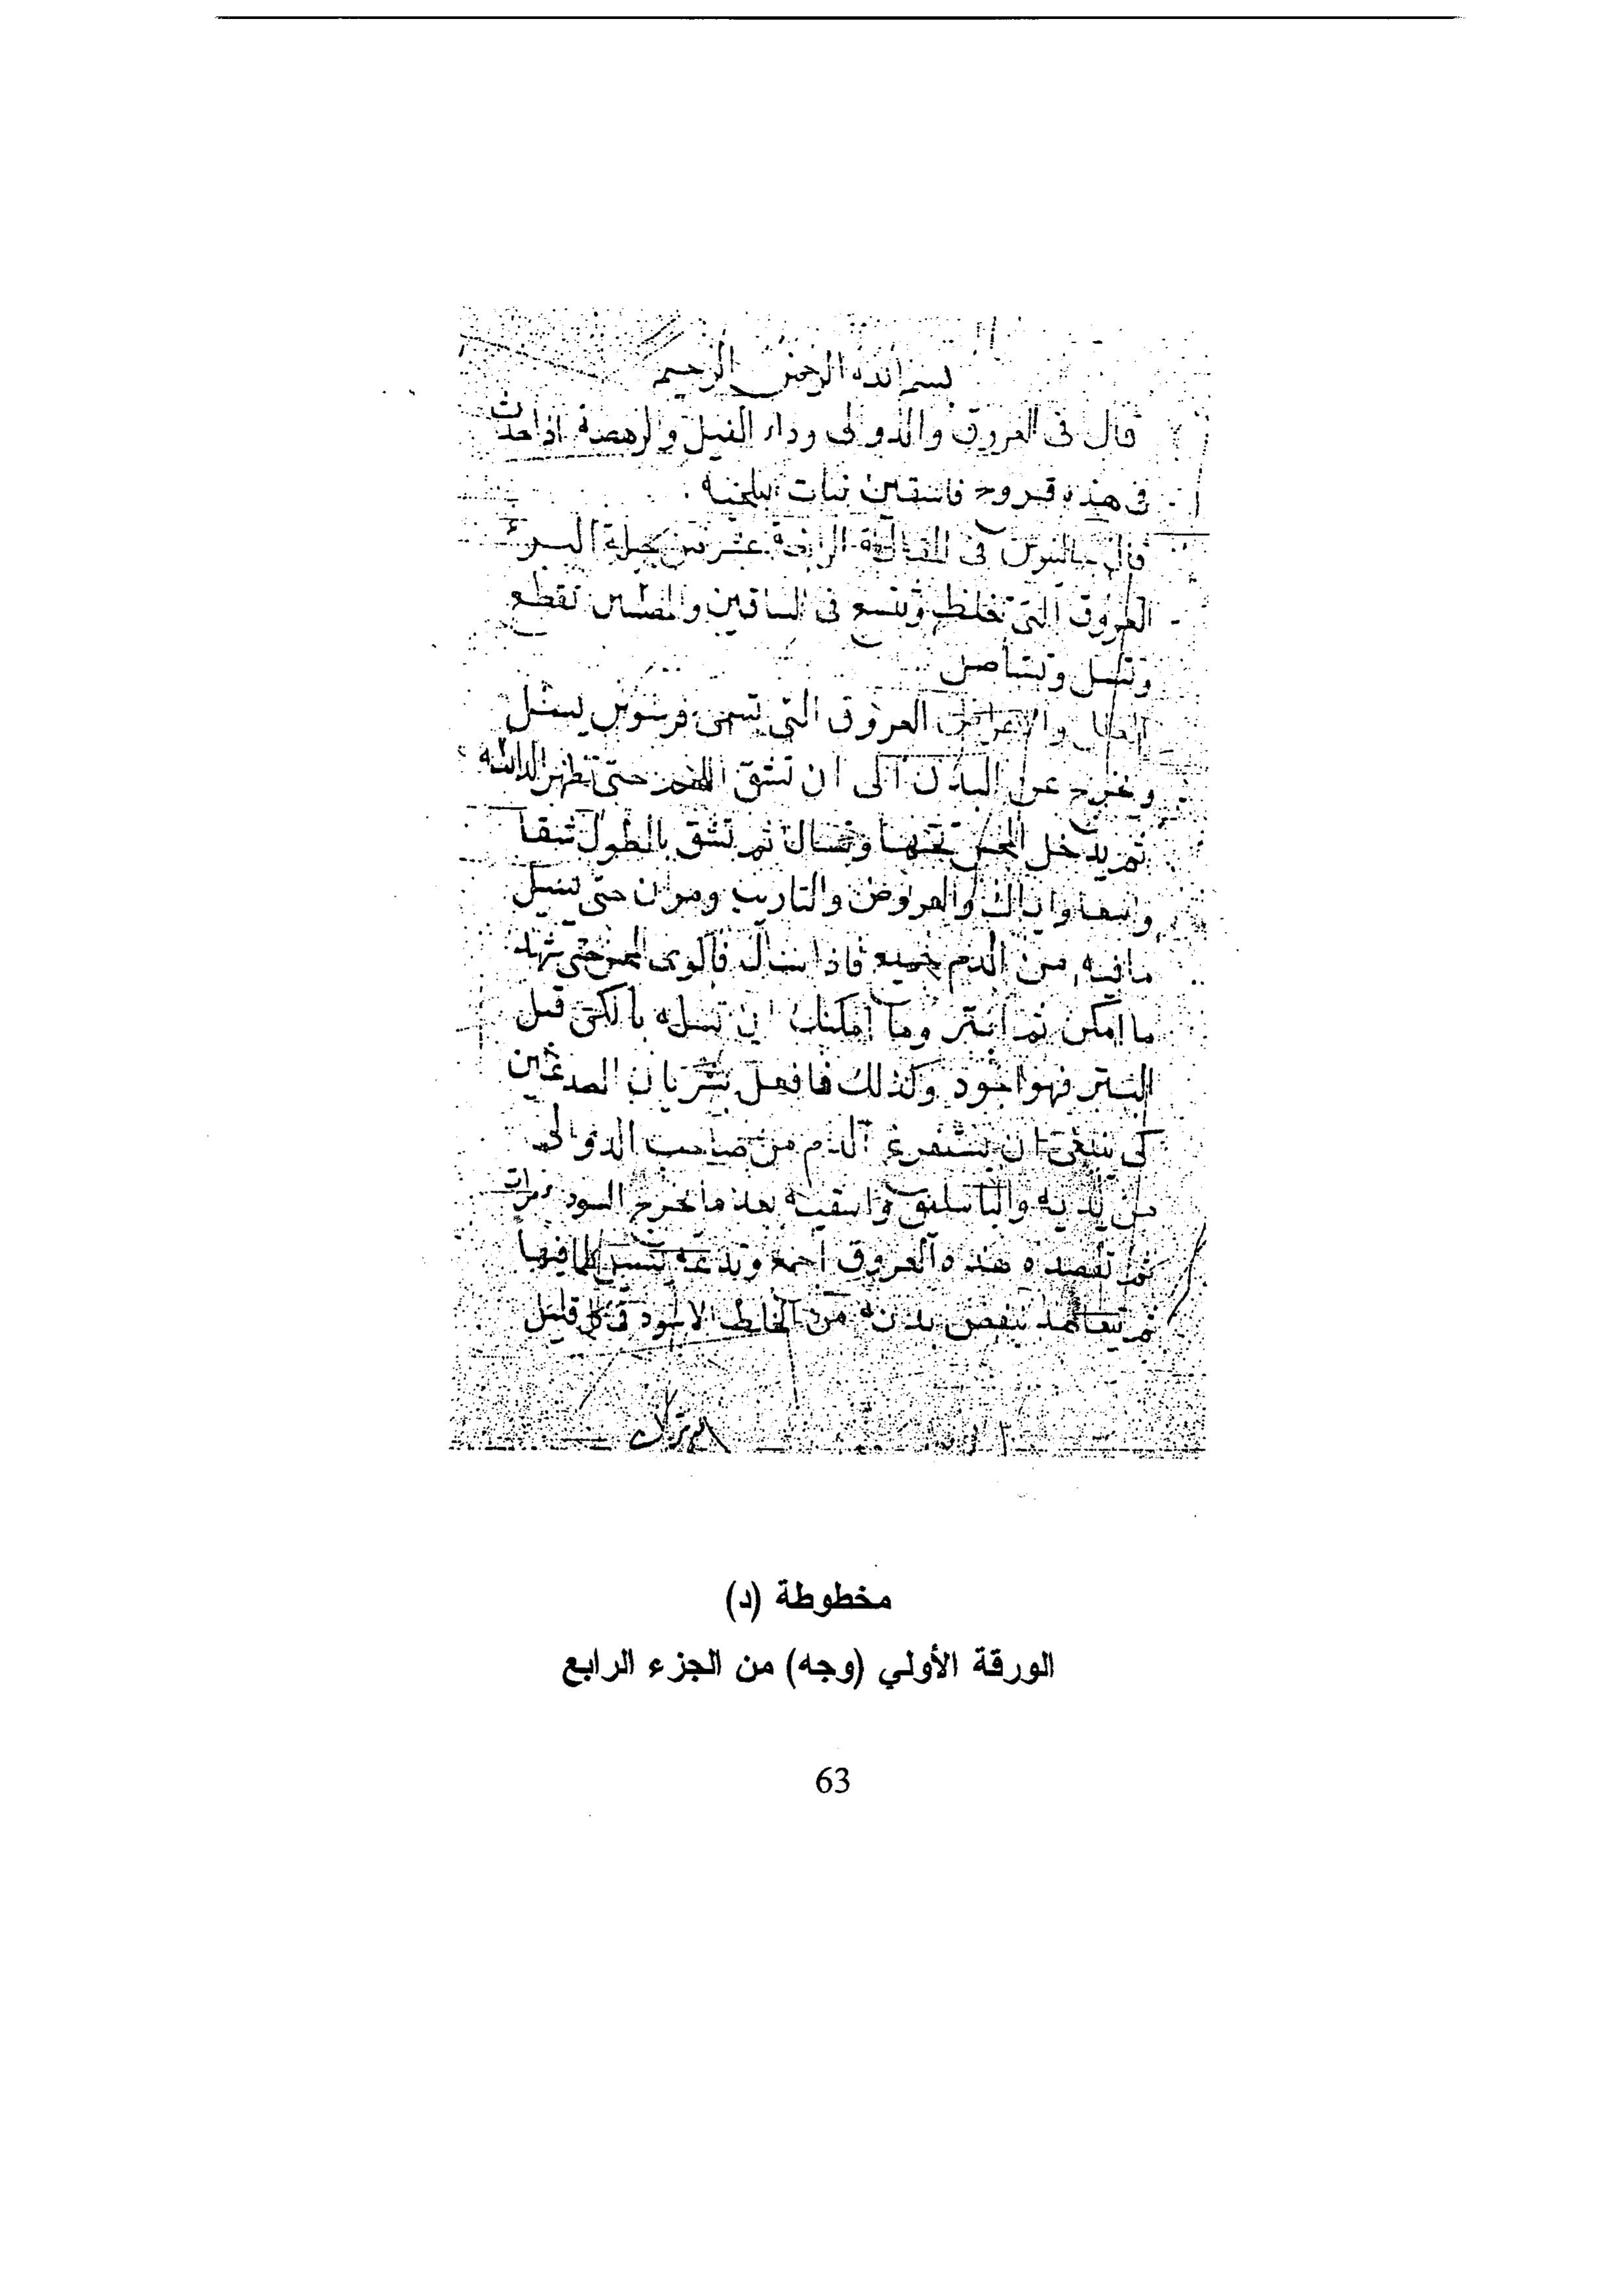 بسم الله الرحمن الرحيم
قال في العروق والدوالى وداء الفيل والرهصة اذا حدث
فى هذه قروح فاسقين نبات
قال جالينوس في المقالة الرابعة عشر من حيلة البرء
العروق التى تغلظ وتتسع فى الساقين تقطع
وتسل وتستاصل
العروق التى تسمى يسل
ويخرج عن البدن الى ان تشق الجلد حتى تظهر
ثم يدخل المجس تحتها وتشال ثم تشق بالطول شقا
واسعا واياك والعروض والتاريب ومر ان حتى يسيل
ما فيه من الدم جميع فاذا سال
ما امكن ثم ابتر وما امكنك ان تسله بالكى قبل
البتر فهو اجود وكذلك فافعل بشريان الصدغين
كى ينبغى ان يستفرغ الدم من صاحب الدوالى
من يديه والباسليق واسقيه بعد ما يخرج السوداء مرات
ثم تفصده هذه العروق اجمع وتدعه يسيل كلما فيها
ثم يتعاهد بنفض بدنه من الخلط الاسود فى كل قليل
مخطوطة (د)
الورقة الأولي (وجه) من الجزء الرابع
63